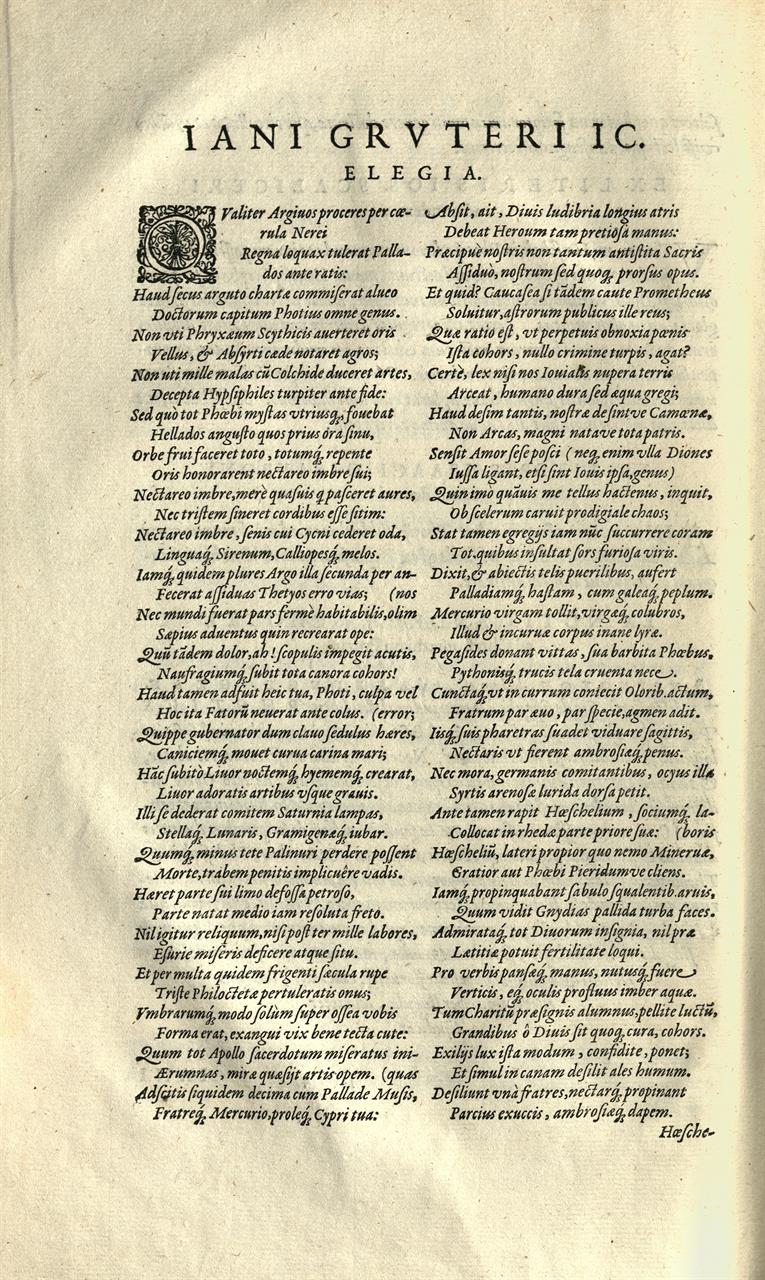 IANI GRVTERI IC.
ELEGIA.
QValiter Argiuos proceres per cæ-
rula Nerei
Regna loquax tulerat Palla-
dos ante ratis:
Haud secus arguto chartæ commiserat alueo
Doctorum capitum Photius omne genus.
Non vti Phryxæum Scythicis auerteret oris
Vellus, & Absyrti cæde notaret agros;
Non uti mille malas cũ Colchide duceret artes,
Decepta Hypsiphiles turpiter ante fide:
Sed quò tot Phœbi mystas vtriusq́, fouebat
Hellados angusto quos prius ora sinu,
Orbe frui faceret toto, totumq́, repente
Oris honorarent nectareo imbre sui;
Nectareo imbre, merè quasuis q pasceret aures,
Nec tristem sineret cordibus esse sitim:
Nectareo imbre, senis cui Cycni cederet oda,
Linguaq́, Sirenum, Calliopesq́, melos.
Iamq́, quidem plures Argo illa secunda per an-
Fecerat assiduas Thetyos erro vias; (nos
Nec mundi fuerat pars fermè habitabilis, olim
Sæpius aduentus quin recrearat ope:
Quũ tãdem dolor, ah! scopulis impegit acutis,
Naufragiumq́, subit tota canora cohors!
Haud tamen adfuit heic tua, Photi, culpa vel
Hoc ita Fatorũ neuerat ante colus. (error;
Quippe gubernator dum clauo sedulus hæres,
Caniciemq́, mouet curua carina mari;
Hãc subitò Liuor noctemq́, hyememq́, crearat,
Liuor adoratis artibus vsque grauis.
Illi se dederat comitem Saturnia lampas,
Stellaq́, Lunaris, Gramigenæq́, iubar.
Quumq́, minus tete Palinuri perdere possent
Morte, trabem penitis implicuêre vadis.
Hæret parte sui limo defossa petroso,
Parte natat medio iam resoluta freto.
Nil igitur reliquum, nisi post ter mille labores,
Esurie miseris deficere atque situ.
Et per multa quidem frigenti sæcula rupe
Triste Philoctetæ pertuleratis onus;
Vmbrarumq́, modo solùm super ossea vobis
Forma erat, exangui vix bene tecta cute:
Quum tot Apollo sacerdotum miseratus ini-
Ærumnas, miræ quæsijt artis opem. (quas
Adscitis siquidem decima cum Pallade Musis,
Fratreq́, Mercurio, proleq́, Cypri tua:
Absit, ait, Diuis ludibria longius atris
Debeat Heroum tam pretiosa manus:
Præcipuè nostris non tantum antistita Sacris
Assiduò, nostrum sed quoq, prorsus opus.
Et quid? Caucasea si tãdem caute Prometheus
Soluitur, astrorum publicus ille reus;
Quæ ratio est, vt perpetuis obnoxia pœnis
Ista cohors, nullo crimine turpis, agat?
Certè, lex nisi nos Iouialis nupera terris
Arceat, humano dura sed æqua gregi;
Haud desim tantis, nostræ desintve Camœnæ,
Non Arcas, magni natave tota patris.
Sensit Amor sese posci (neq, enim vlla Diones
Iussa ligant, etsi sint Iouis ipsa, genus)
Quin imò quãuis me tellus hactenus, inquit,
Ob scelerum caruit prodigiale chaos;
Stat tamen egregijs iam nũc succurrere coram
Tot, quibus insultat sors furiosa viris.
Dixit, & abiectis telis puerilibus, aufert
Palladiamq́, hastam, cum galeaq́, peplum.
Mercurio virgam tollit, virgæq́, colubros,
Illud & incuruæ corpus inane lyræ.
Pegasides donant vittas, sua barbita Phœbus,
Pythonisq́, trucis tela cruenta nece.
Cunctaq́, vt in currum coniecit Olorib. actum,
Fratrum par æuo, par specie, agmen adit.
Iisq́, suis pharetras suadet viduare sagittis,
Nectaris vt fierent ambrosiæq́, penus.
Nec mora, germanis comitantibus, ocyus illæ
Syrtis arenosæ lurida dorsa petit.
Ante tamen rapit Hœschelium, sociumq́, la-
Collocat in rhedæ parte priore suæ: (boris
Hœscheliũ, lateri propior quo nemo Mineruæ,
Gratior aut Phœbi Pieridumve cliens.
Iamq́, propinquabant sabulo squalentib. aruis,
Quum vidit Gnydias pallida turba faces.
Admirataq́, tot Diuorum insignia, nil præ
Lætitiæ potuit fertilitate loqui.
Pro verbis pansæq́, manus, nutusq́, fuere
Verticis, eq́, oculis profluus imber aquæ.
Tum Charitũ præsignis alumnus, pellite luctũ,
Grandibus ô Diuis sit quoq, cura, cohors.
Exilijs lux ista modum, confidite, ponet;
Et simul in canam desilit ales humum.
Desiliunt vnà fratres, nectarq́, propinant
Parcius exuccis, ambrosiæq́, dapem.
Hœsche-